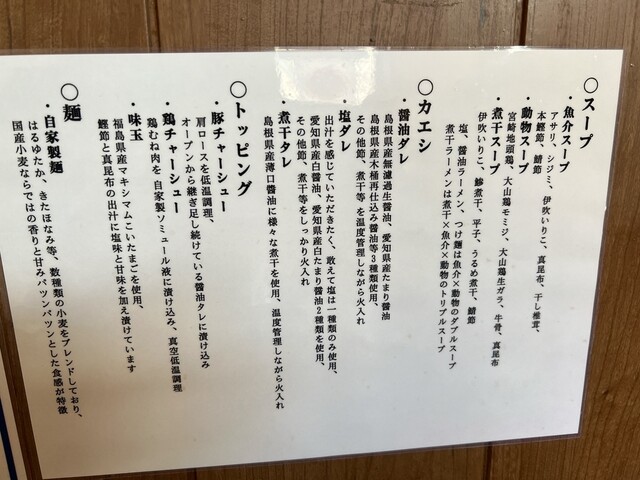 〇スープ
・魚介スープ
アサリ、シジミ、伊吹いりこ、真昆布、干し椎茸、
本鰹節、鯖節
・動物スープ
宮崎地頭鶏、大山鶏モミジ、大山鶏生ガラ、牛骨、真昆布
・煮干スープ
伊吹いりこ、鯵煮干、平子、うるめ煮干、鯖節
塩、醤油ラーメン、つけ麺は魚介×動物のダブルスープ
煮干ラーメンは煮干×魚介×動物のトリプルスープ
〇カエシ
・醤油ダレ
島根県産無濾過生醤油、愛知県産たまり醤油
島根県産木桶再仕込み醤油等3種類使用、
その他節、煮干等を温度管理しながら火入れ
・塩ダレ
出汁を感じていただきたく、敢えて塩は一種類のみ使用、
愛知県産白醤油、愛知県産白たまり醤油2種類を使用、
その他節、煮干等をしっかり火入れ
・煮干タレ
島根県産薄口醤油に様々な煮干を使用、温度管理しながら火入れ
〇トッピング
・豚チャーシュー
肩ロースを低温調理、
オープンから継ぎ足し続けている醤油タレに漬け込み
・鶏チャーシュー
鶏むね肉を自家製ソミュール液に漬け込み、真空低温調理
・味玉
福島県産マキシマムこいたまごを使用、
鰹節と真昆布の出汁に塩味と甘味を加え漬けています
〇麺
・自家製麺
はるゆたか、きたほなみ等、数種類の小麦をブレンドしており、
国産小麦ならではの香りと甘みパツンパツンとした食感が特徴